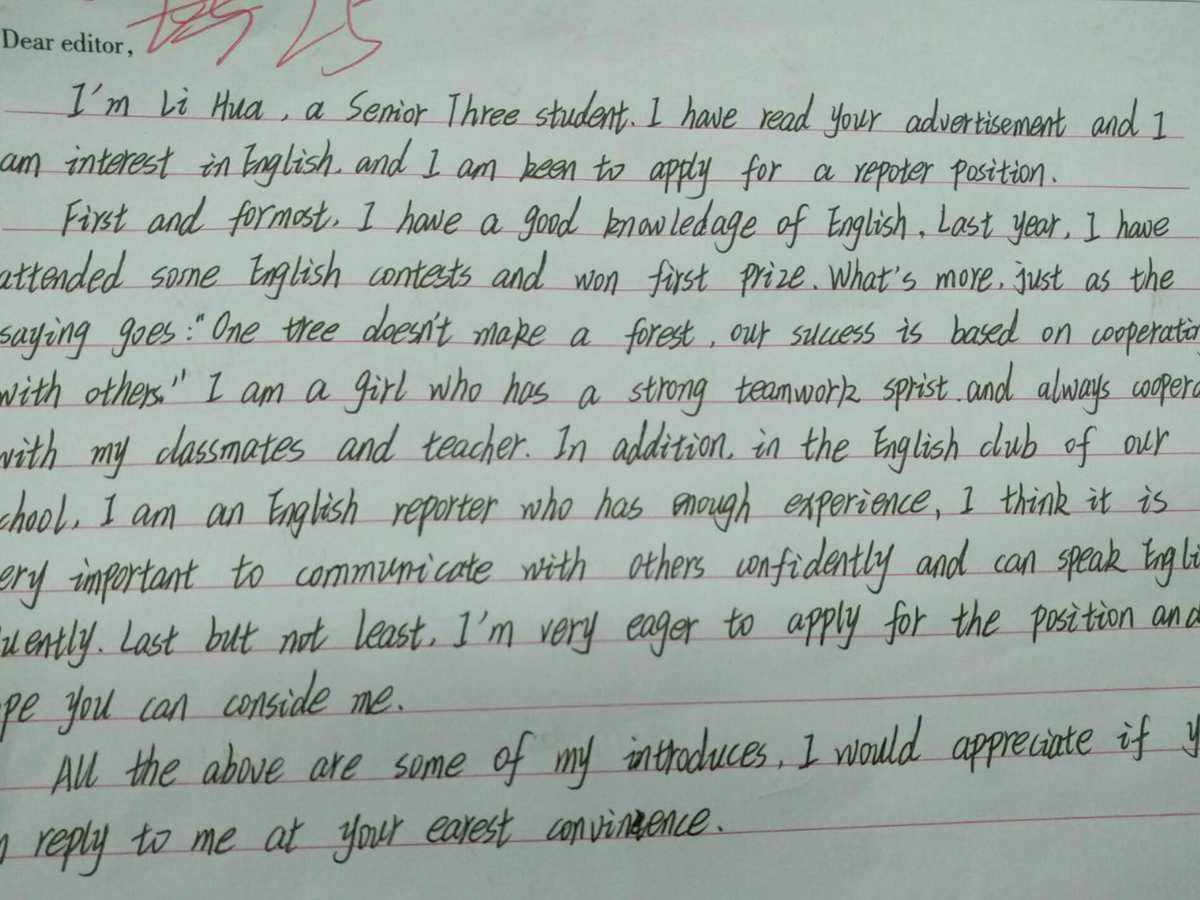 Dear editor,
25
I'm Li Hua, a Senior Three student. I have read your advertisement and I
am interest in English. and I am keen to apply for a repoter position.
First and formost, I have a good knowledage of English, Last year, I have
attended some English contests and won first prize. What's more, just as the
saying goes: "One tree doesn't make a forest, our success is based on cooperatin
with others." I am a girl who has a strong teamwork sprist and always coopera
with my classmates and teacher. In addition, in the English club of our
chool, I am an English reporter who has enough experience, I think it is
ery important to communicate with others confidently and can speak Engli
uently. Last but not least, I'm very eager to apply for the position and
pe you can conside me.
All the above are some of my introduces, I would appreciate if y
n reply to me at your earest convinence.